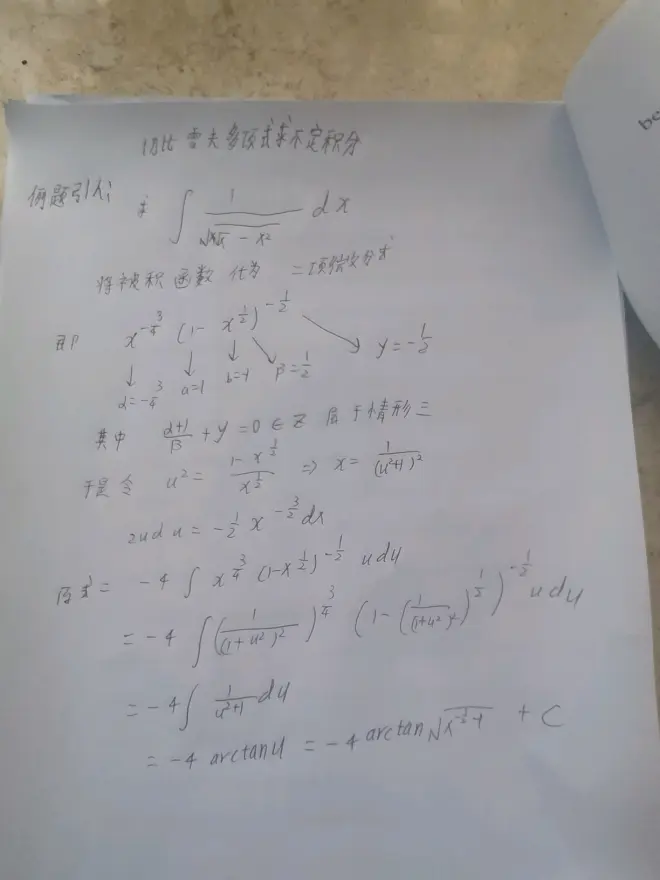 切比雪夫多项式求不定积分
例题引入: 求 ∫ 1/√(x√x - x²) dx
将被积函数化为 二项微分式
即 x^(-3/4) (1 - x^(1/2))^(-1/2)
α=-3/4 a=1 b=-1 β=1/2 γ=-1/2
其中 (α+1)/β + γ = 0 ∈ Z 属于情形三
于是令 u² = (1-x^(1/2))/x^(1/2) ⇒ x = 1/(u²+1)²
2u du = -1/2 x^(-3/2) dx
原式 = -4 ∫ x^(3/4) (1-x^(1/2))^(-1/2) u du
= -4 ∫ (1/(1+u²)²)^(3/4) (1-(1/(1+u²)²)^(1/2))^(-1/2) u du
= -4 ∫ 1/(u²+1) du
= -4 arctan u = -4 arctan √(x^(-1/2)-1) + C
be